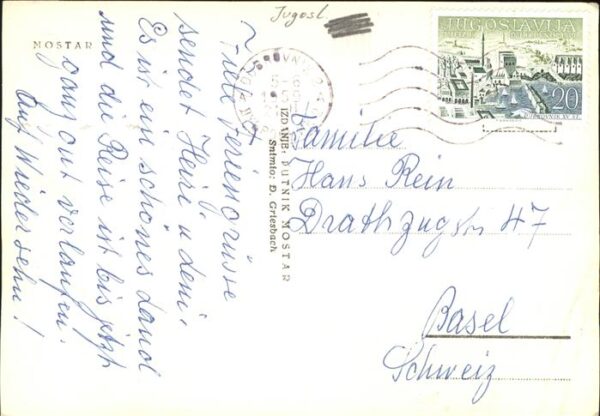 Jugosl.
MOSTAR
JUGOSLAVIJA
20
DUBROVNIK
IZDANJE: PUTNIK MOSTAR
Snimio: D. Griesbach
Viele Feriengrüsse
sendet Heiri u. deni.
Es ist ein schönes Land
und die Reise ist bis jetzt
ganz gut verlaufen.
Auf Wiedersehn!
Familie
Hans Rein
Drathzugstr 47
Basel
Schweiz